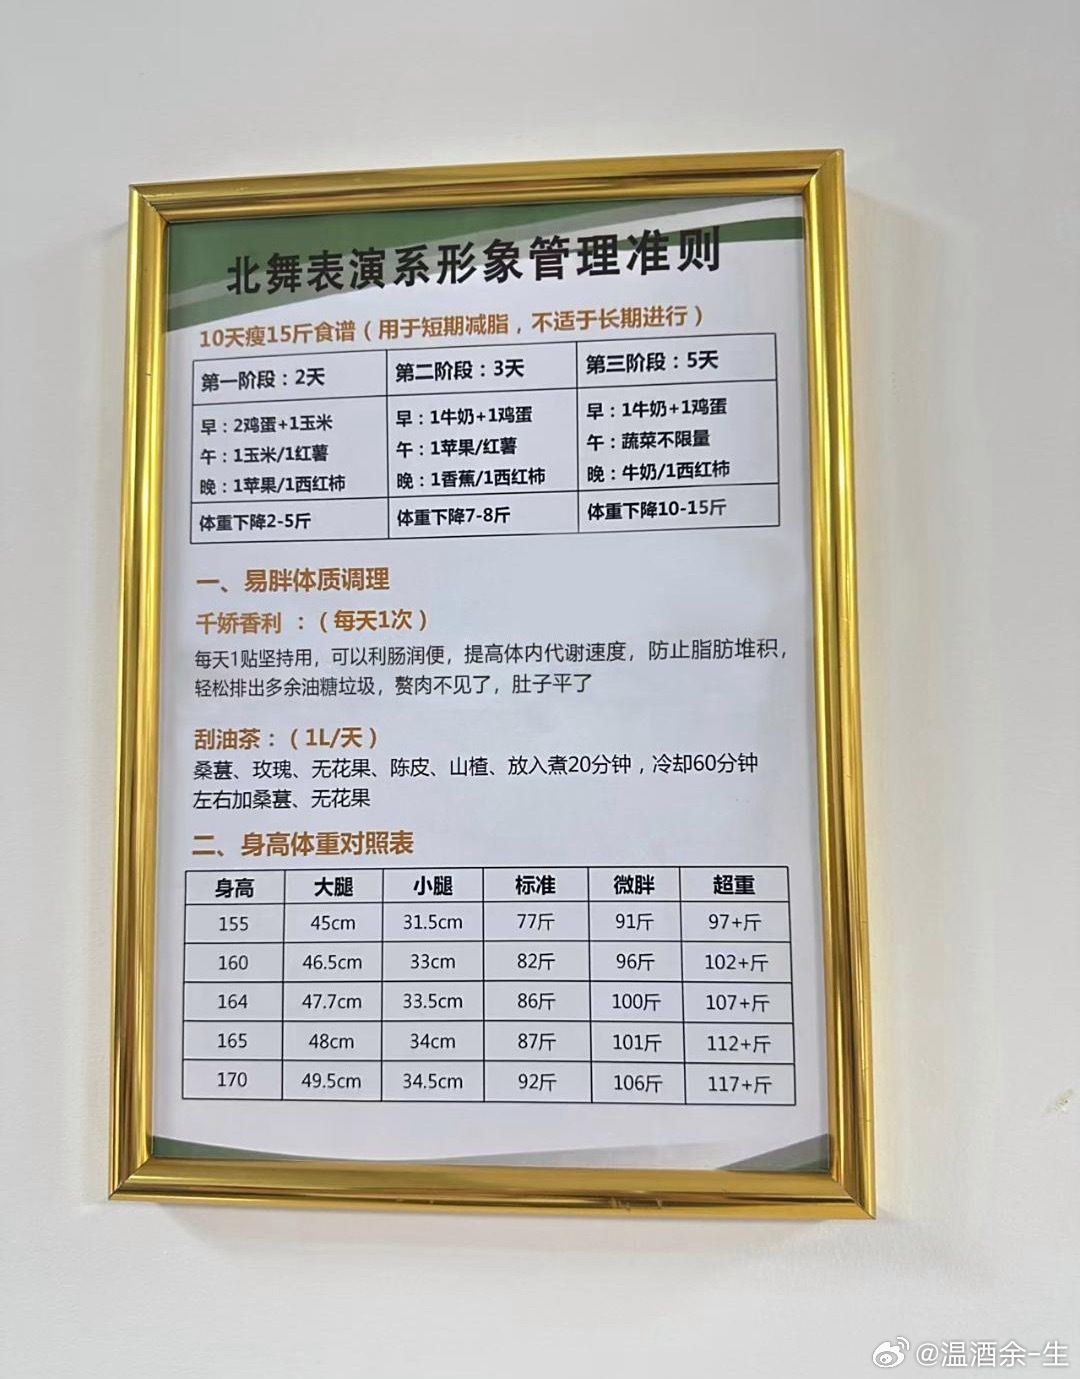 北舞表演系形象管理准则
10天瘦15斤食谱（用于短期减脂，不适于长期进行）
第一阶段：2天 第二阶段：3天 第三阶段：5天
早：2鸡蛋+1玉米 早：1牛奶+1鸡蛋 早：1牛奶+1鸡蛋
午：1玉米/1红薯 午：1苹果/红薯 午：蔬菜不限量
晚：1苹果/1西红柿 晚：1香蕉/1西红柿 晚：牛奶/1西红柿
体重下降2-5斤 体重下降7-8斤 体重下降10-15斤
一、易胖体质调理
千娇香利 ：（每天1次）
每天1贴坚持用，可以利肠润便，提高体内代谢速度，防止脂肪堆积，
轻松排出多余油糖垃圾，赘肉不见了，肚子平了
刮油茶：（1L/天）
桑葚、玫瑰、无花果、陈皮、山楂、放入煮20分钟，冷却60分钟
左右加桑葚、无花果
二、身高体重对照表
身高 大腿 小腿 标准 微胖 超重
155 45cm 31.5cm 77斤 91斤 97+斤
160 46.5cm 33cm 82斤 96斤 102+斤
164 47.7cm 33.5cm 86斤 100斤 107+斤
165 48cm 34cm 87斤 101斤 112+斤
170 49.5cm 34.5cm 92斤 106斤 117+斤
@温酒余-生